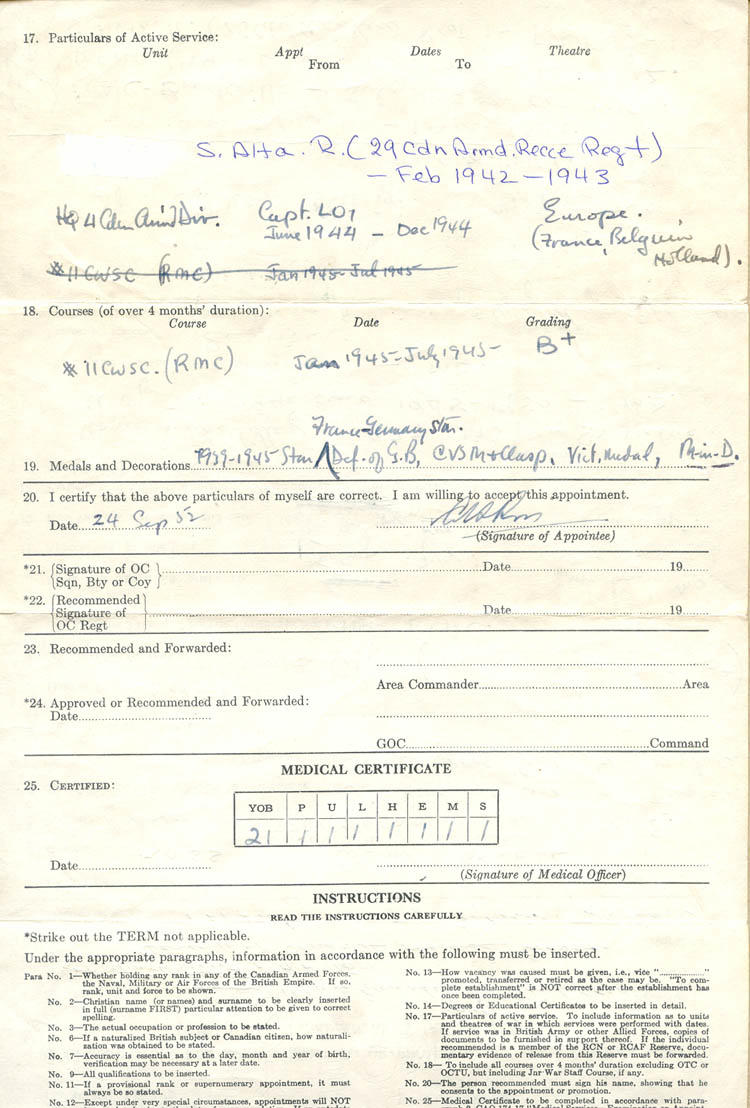 17. Particulars of Active Service:
Unit Appt Dates Theatre
From To
S. Alta. R. (29 Cdn Armd. Recce Regt)
— Feb 1942 — 1943
HQ 4 Cdn Armd Div. Capt. LO1 Europe.
June 1944 — Dec 1944 (France, Belguim
Holland).
*11 CWSC (RMC) Jan 1945 - Jul 1945
18. Courses (of over 4 months' duration):
Course Date Grading
*11 CWSC. (RMC) Jan 1945 - July 1945 - B+
France-Germany Star.
19. Medals and Decorations 1939-1945 Star / Def. of G.B, CVSM & Clasp, Vict. Medal, M-in-D.
20. I certify that the above particulars of myself are correct. I am willing to accept this appointment.
Date 24 Sep 52
(Signature of Appointee)
*21. {Signature of OC Date 19
Sqn, Bty or Coy }
*22. {Recommended
Signature of Date 19
OC Regt
23. Recommended and Forwarded:
Area Commander Area
*24. Approved or Recommended and Forwarded:
Date
GOC Command
MEDICAL CERTIFICATE
25. CERTIFIED:
YOB P U L H E M S
21 1 1 1 1 1 1 1
Date
(Signature of Medical Officer)
INSTRUCTIONS
READ THE INSTRUCTIONS CAREFULLY
*Strike out the TERM not applicable.
Under the appropriate paragraphs, information in accordance with the following must be inserted.
Para No. 1—Whether holding any rank in any of the Canadian Armed Forces,
the Naval, Military or Air Forces of the British Empire. If so,
rank, unit and force to be shown.
No. 2—Christian name (or names) and surname to be clearly inserted
in full (surname FIRST) particular attention to be given to correct
spelling.
No. 3—The actual occupation or profession to be stated.
No. 6—If a naturalized British subject or Canadian citizen, how naturali-
zation was obtained to be stated.
No. 7—Accuracy is essential as to the day, month and year of birth,
verification may be necessary at a later date.
No. 9—All qualifications to be inserted.
No. 11—If a provisional rank or supernumerary appointment, it must
always be so stated.
No. 12—Except under very special circumstances, appointments will NOT
No. 13—How vacancy was caused must be given, i.e., vice "................"
promoted, transferred or retired as the case may be. "To com-
plete establishment" is NOT correct after the establishment has
once been completed.
No. 14—Degrees or Educational Certificates to be inserted in detail.
No. 17—Particulars of active service. To include information as to units
and theatres of war in which services were performed with dates.
If service was in British Army or other Allied Forces, copies of
documents to be furnished in support thereof. If the individual
recommended is a member of the RCN or RCAF Reserve, docu-
mentary evidence of release from this Reserve must be forwarded.
No. 18—To include all courses over 4 months' duration excluding OTC or
OCTU, but including Jnr War Staff Course, if any.
No. 20—The person recommended must sign his name, showing that he
consents to the appointment or promotion.
No. 25—Medical Certificate to be completed in accordance with para-